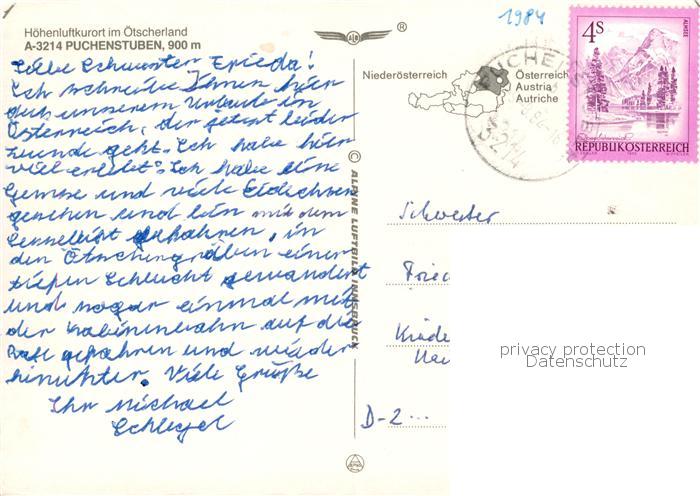 Höhenluftkurort im Ötscherland
A-3214 PUCHENSTUBEN, 900 m
Liebe Schwester Frieda!
Ich schreibe Ihnen hier
aus unserem Urlaub in
Österreich, der jetzt leider
zuende geht. Ich habe hier
viel erlebt: Ich habe eine
Gemse und viele Eidechsen
gesehen und bin mit dem
Sessellift gefahren, in
den Ötschergräben einer
tiefen Schlucht gewandert
und sogar einmal mit
der Kabinenbahn auf die
Rax gefahren und wieder
hinunter. Viele Grüße
Ihr Michael
Schlegel
© ALPINE LUFTBILD INNSBRUCK
ALB ®
1984
Niederösterreich
Österreich
Austria
Autriche
3214
4S
ALMSEE
REPUBLIK ÖSTERREICH
Schwester
Fried
Kinde
Hau
D-2...
privacy protection
Datenschutz